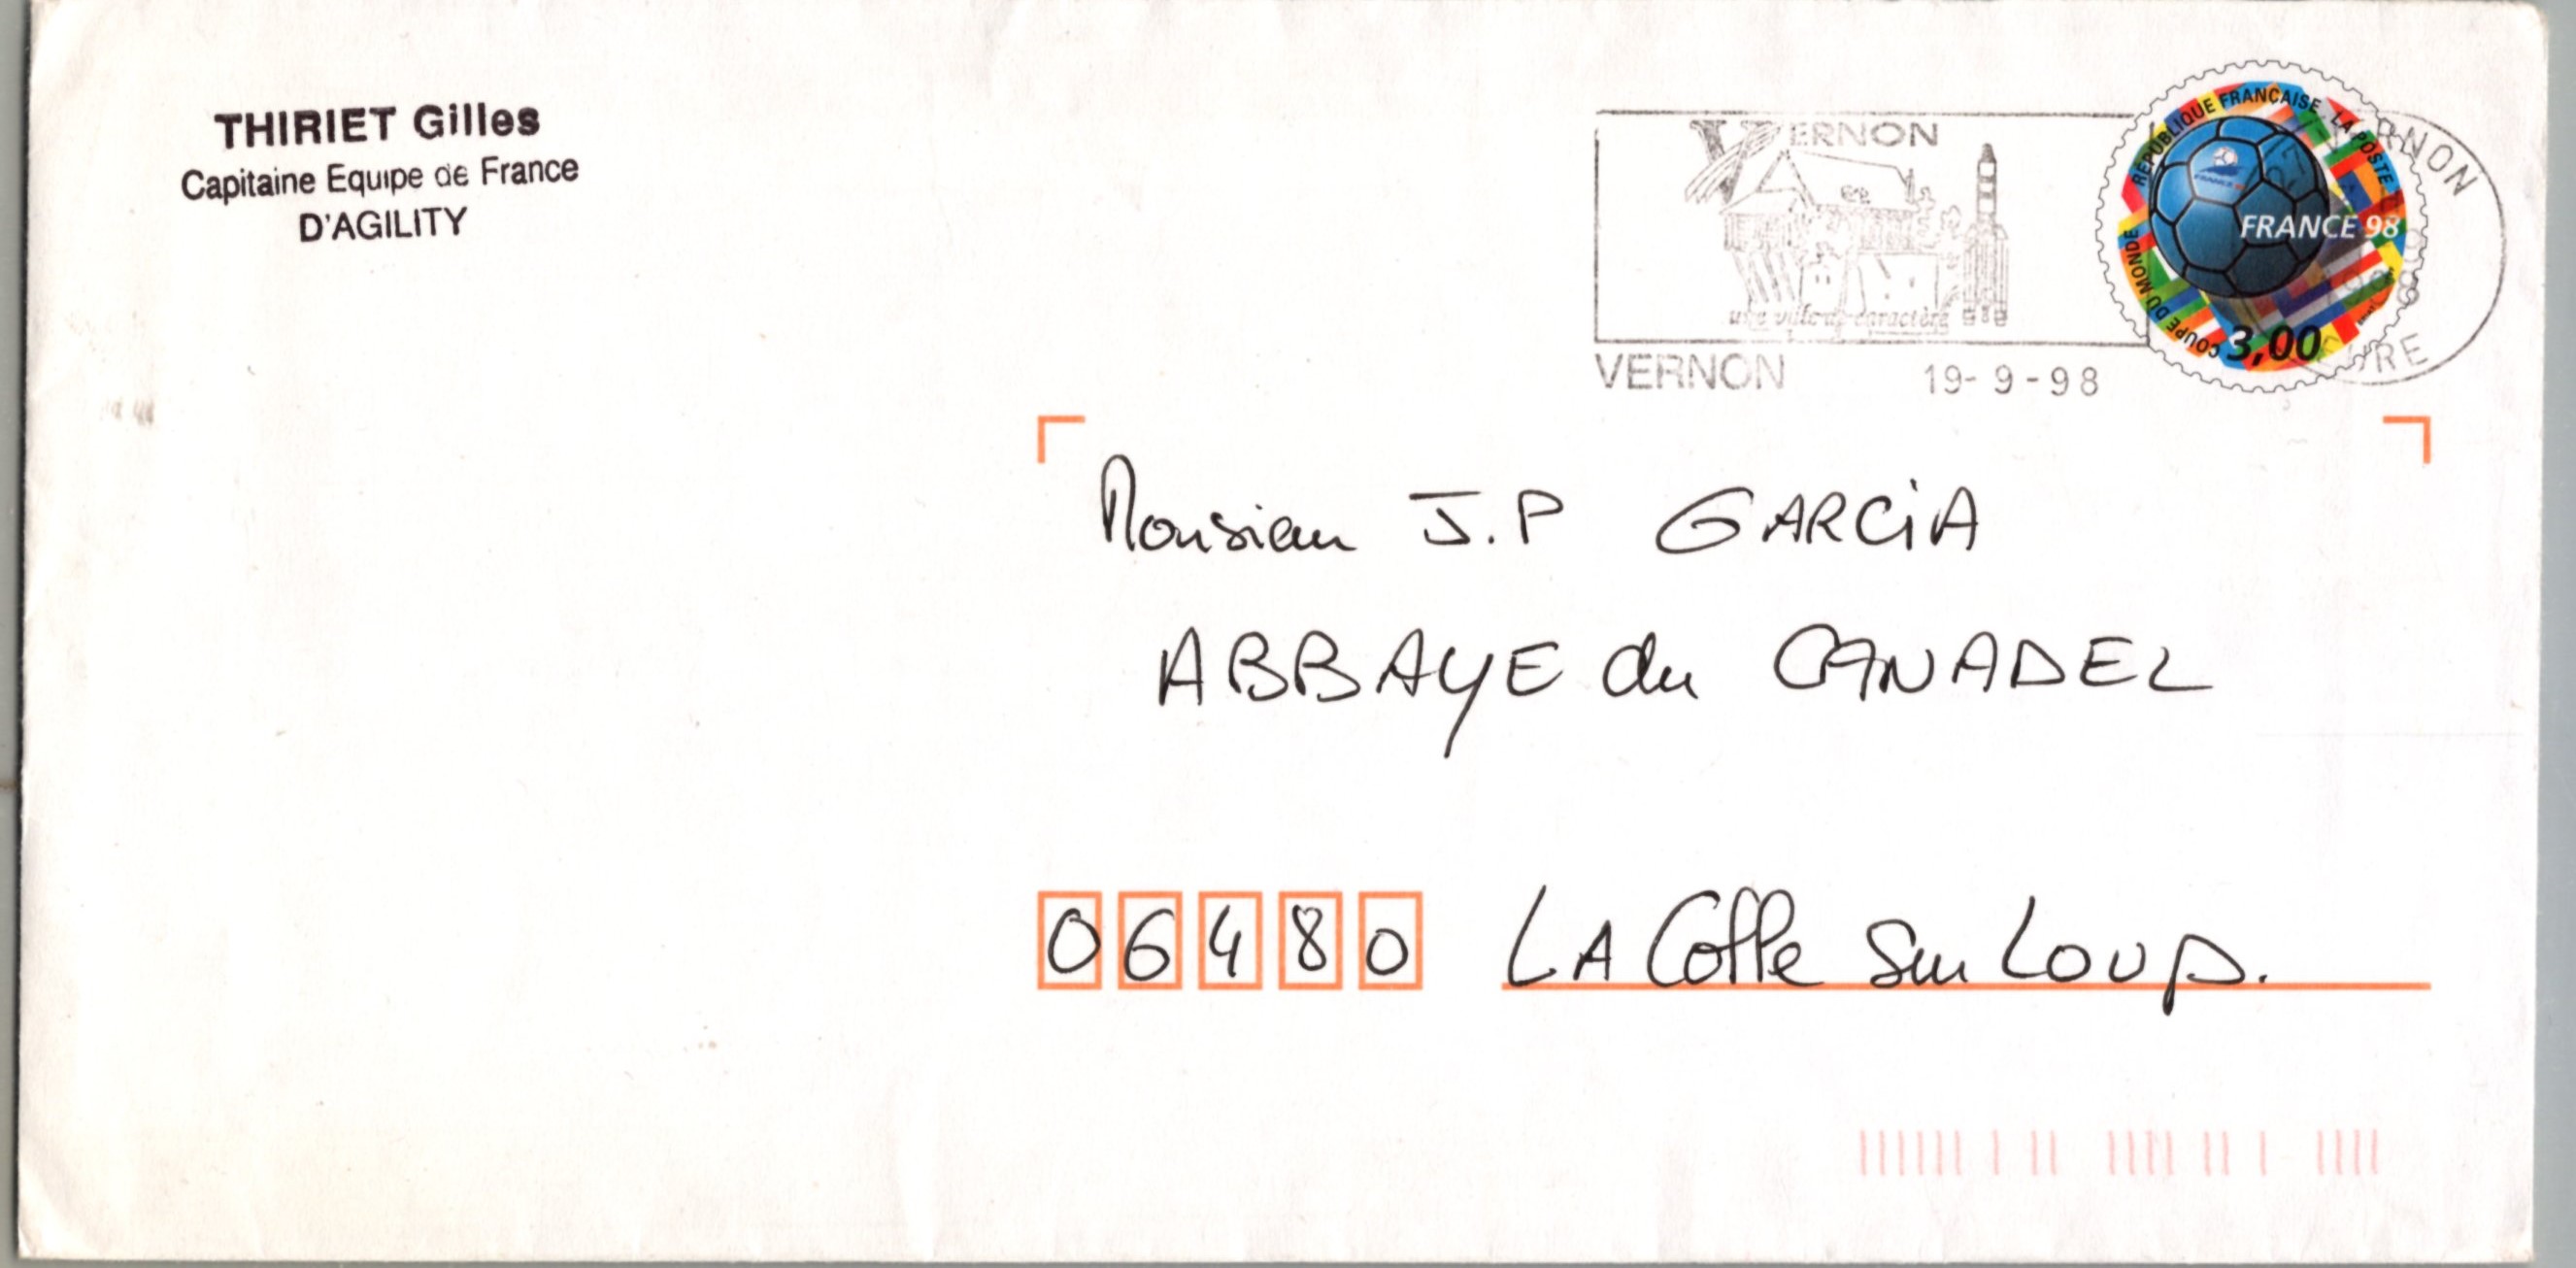 THIRIET Gilles
Capitaine Equipe de France
D'AGILITY
VERNON
une ville de caractère
VERNON 19-9-98
RÉPUBLIQUE FRANÇAISE LA POSTE
FRANCE 98
COUPE DU MONDE
3,00
Monsieur J.P GARCIA
ABBAYE du CANADEL
06480 LA Colle sur Loup.